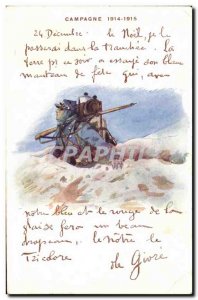 CAMPAGNE 1914-1915
24 Décembre - le Noël, je le
passerai dans la tranchée. La
terre par ce soir a essayé son bleu
manteau de fête qui, avec
notre bleu et le rouge de la
fera un beau
drapeau, le nôtre le
Tricolore
de Givre